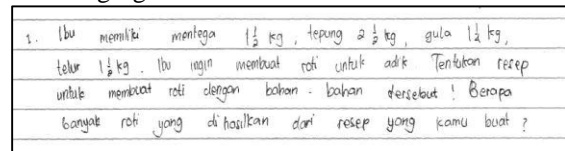 1. Ibu memiliki mentega 1 1/2 kg, tepung 2 1/2 kg, gula 1 1/2 kg,
telur 1 1/2 kg. Ibu ingin membuat roti untuk adik Tentukan resep
untuk membuat roti dengan bahan-bahan tersebut! Berapa
banyak roti yang dihasilkan dari resep yang kamu buat?